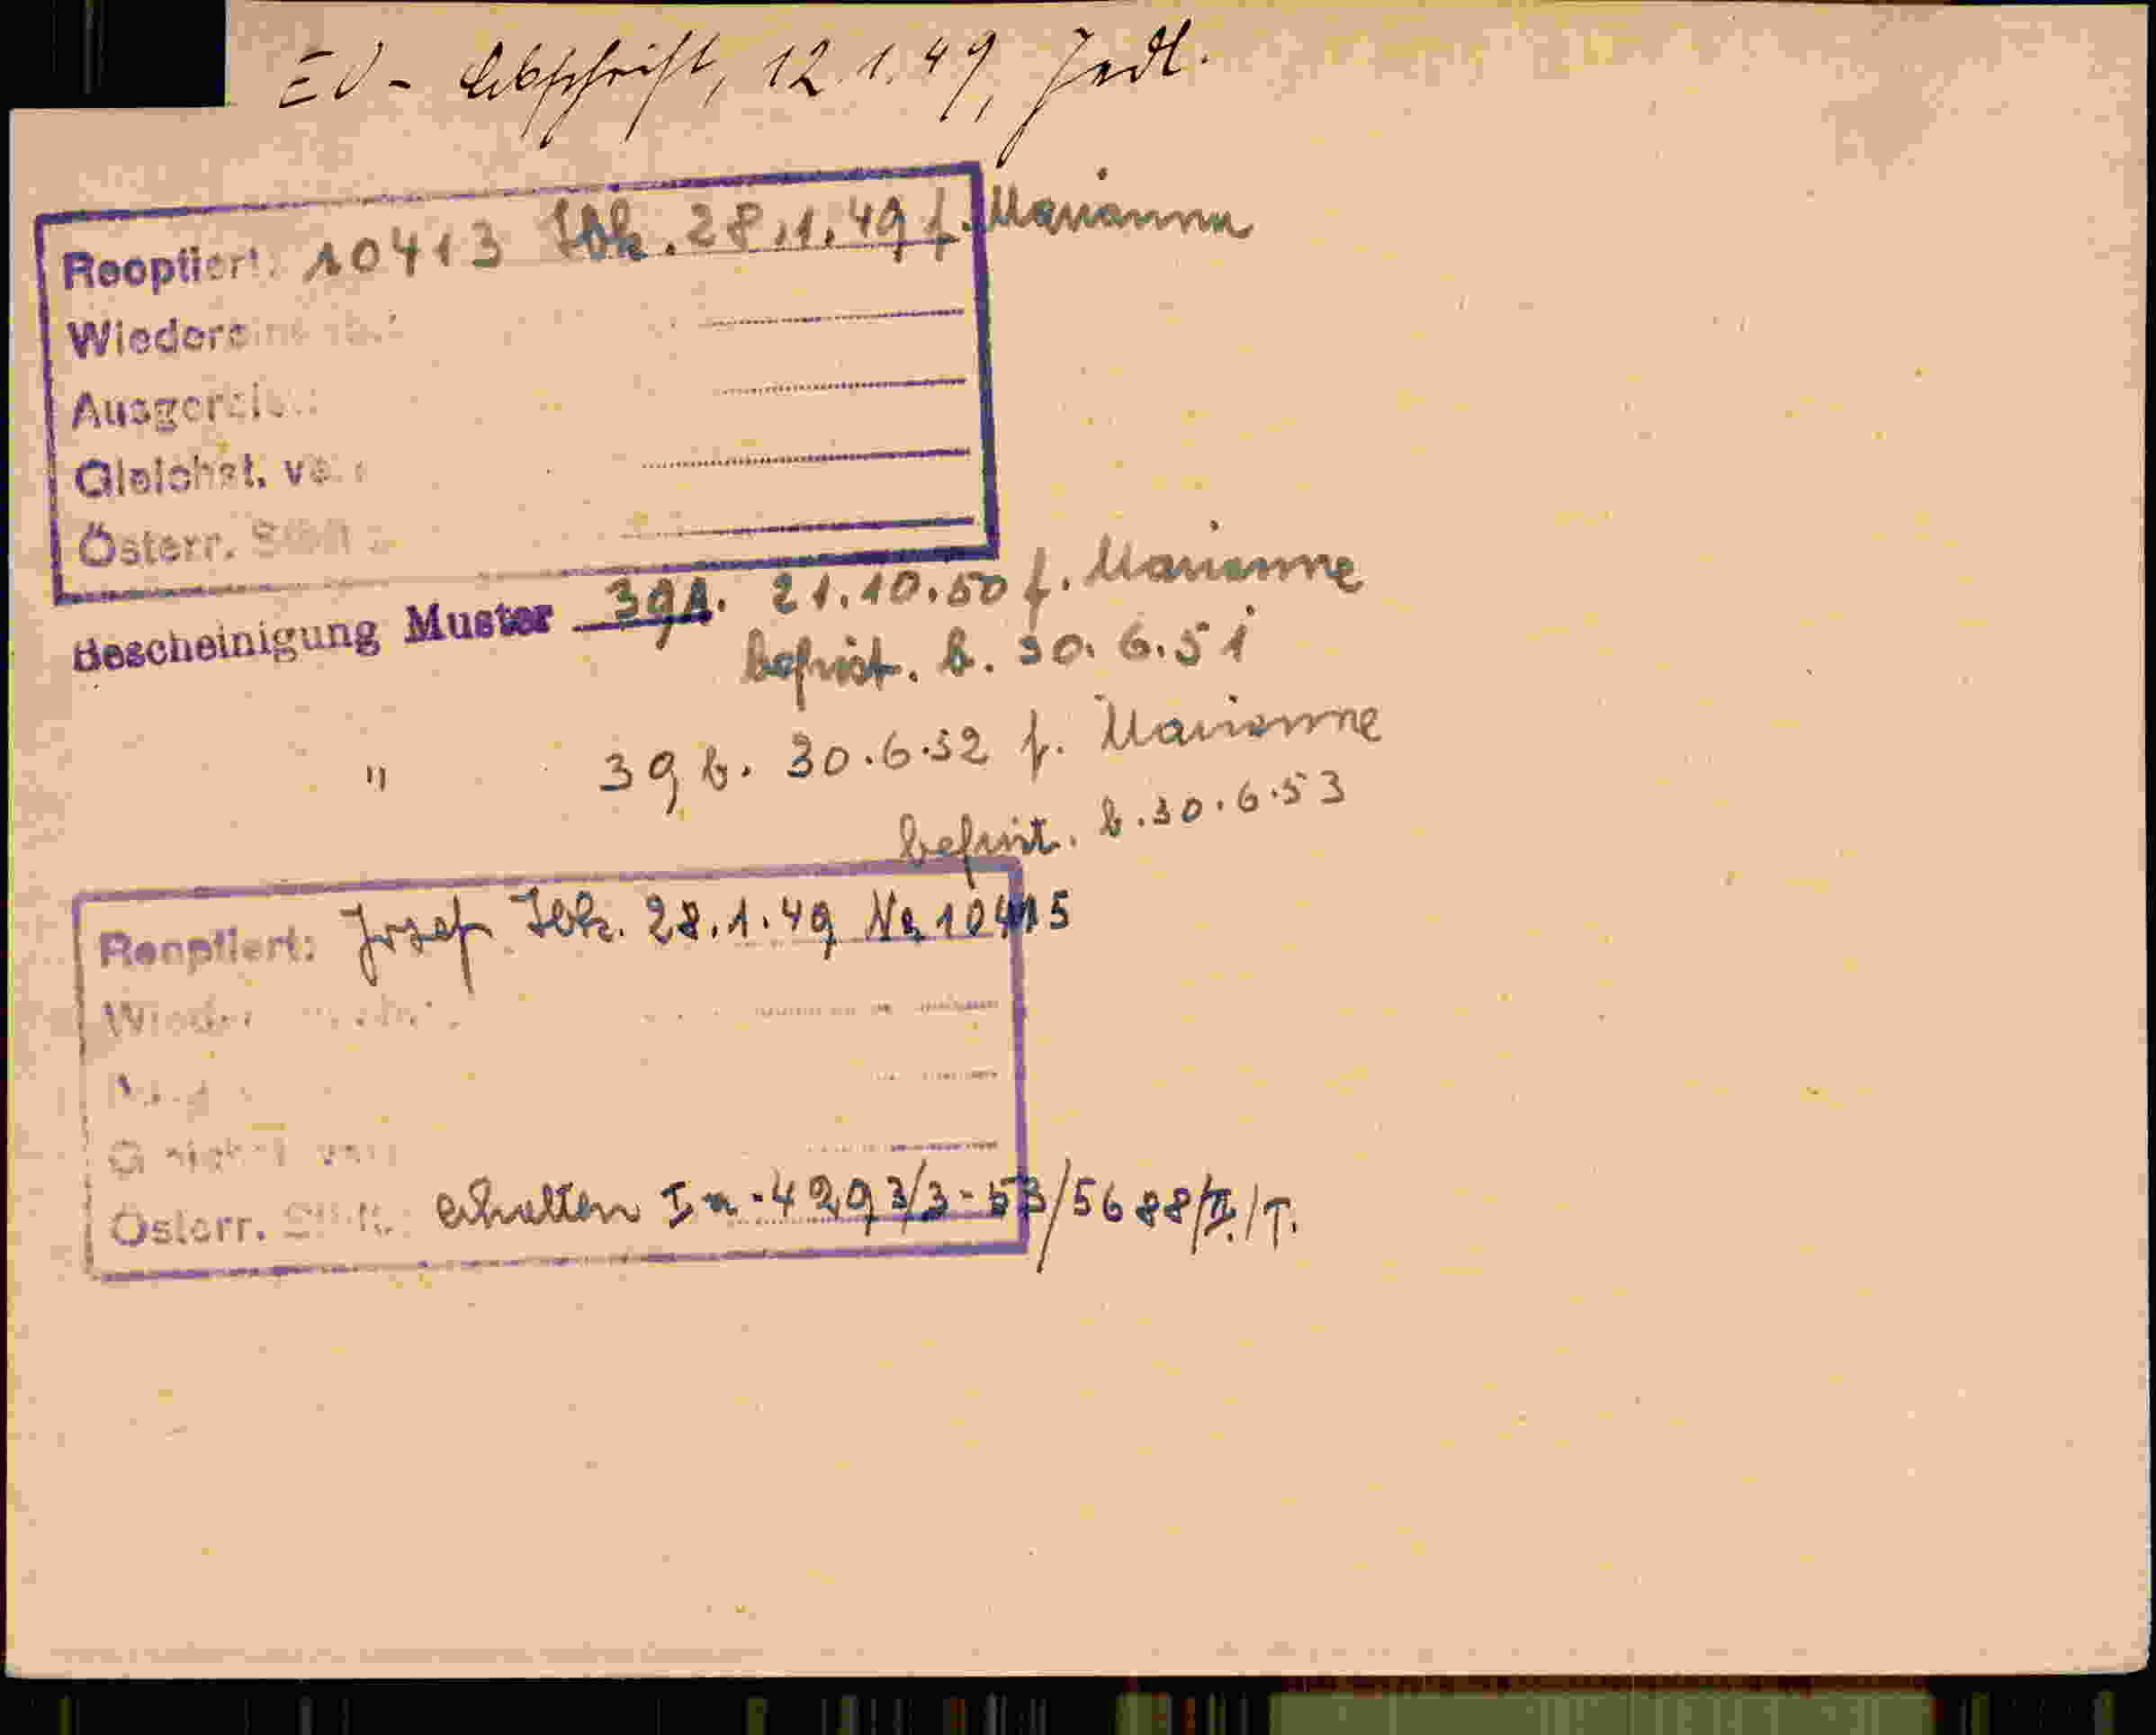 EV - Abschrift, 12.1.49, Jedl.
Reoptiert: 10413 Ibk. 28.1.49 f. Marianna
Ausgereist
Gleichst. ver
Österr.
Bescheinigung Muster 39a. 21.10.50 f. Marianne
befrist. b. 30.6.51
" 39b. 30.6.52 f. Marianne
befrist. b. 30.6.53
Reoptiert: Josef Ibk. 28.1.49 Nr 10415
Österr. erhalten Ia-4293/3-53/5688/II/T.